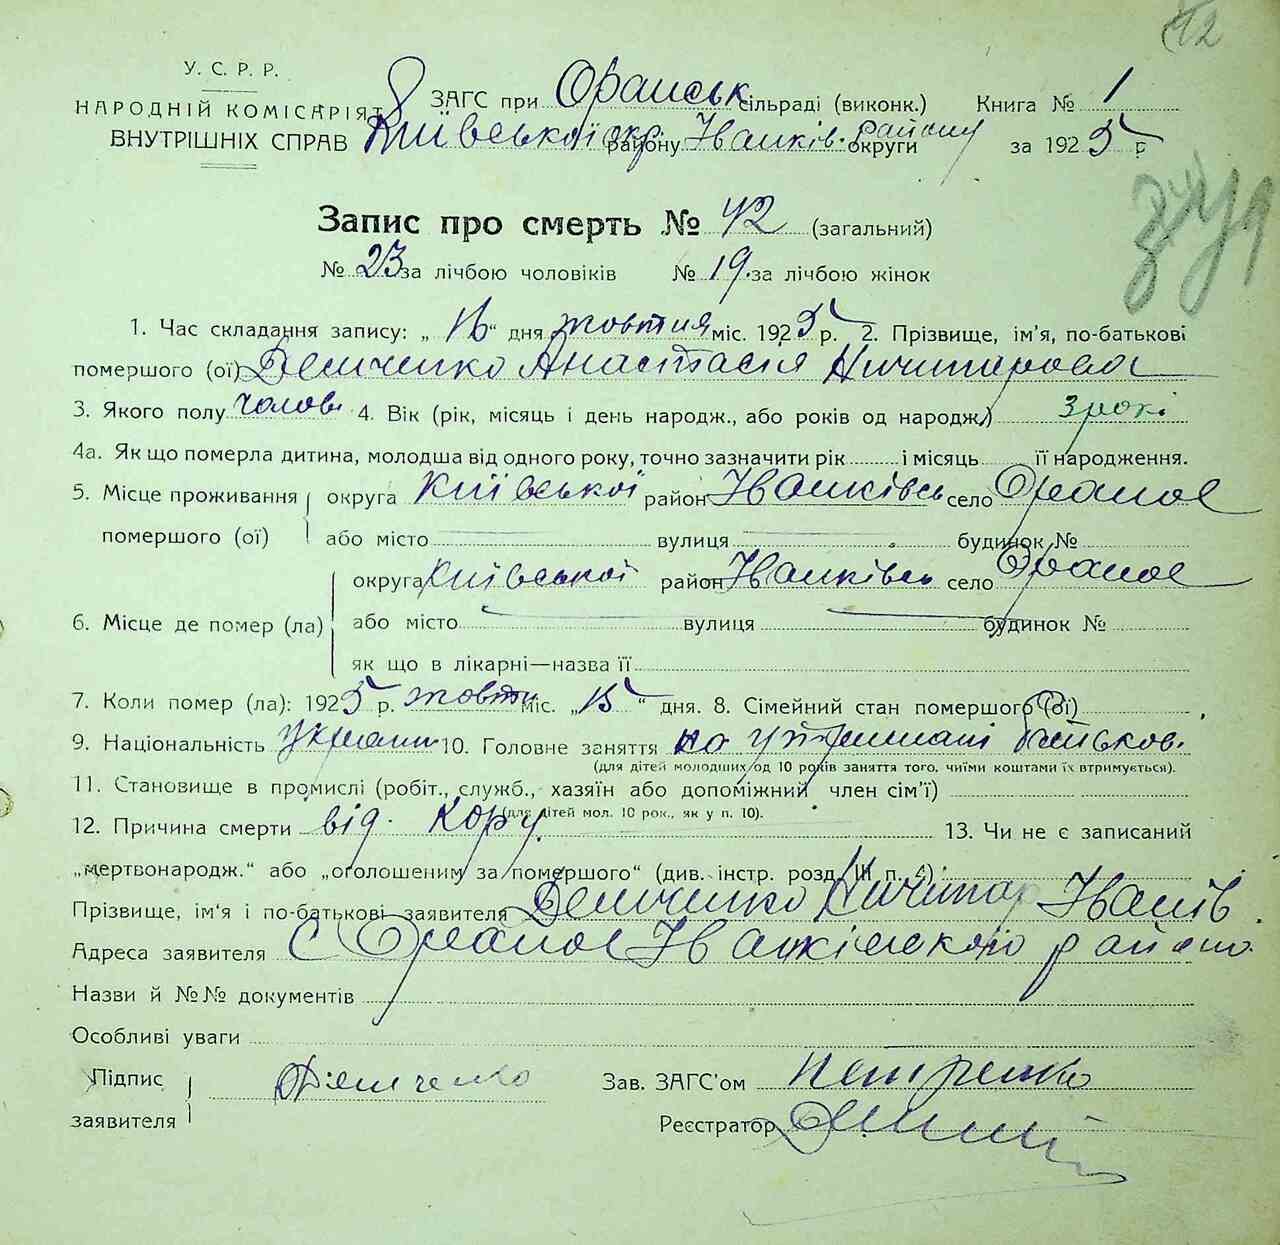 У. С. Р. Р.
НАРОДНІЙ КОМІСАРІЯТ
ВНУТРІШНІХ СПРАВ
ЗАГС при Оранськ сільраді (виконк.) Книга № 1
Київської окр. району Іванків. району округи за 1925 р
Запис про смерть № 42 (загальний)
№ 23 за лічбою чоловіків № 19 за лічбою жінок
1. Час складання запису: „ 16 “ дня жовтня міс. 1925 р. 2. Прізвище, ім'я, по-батькові
помершого (ої) Демченко Анастасія Ничипорова
3. Якого полу чолов 4. Вік (рік, місяць і день народж., або років од народж.) 3 рокі
4а. Як що померла дитина, молодша від одного року, точно зазначити рік і місяць її народження.
5. Місце проживання округа Київської район Іванківськ село Ораное
помершого (ої) або місто вулиця будинок №
округа Київської район Іванківськ село Ораное
6. Місце де помер (ла) або місто вулиця будинок №
як що в лікарні—назва її
7. Коли помер (ла): 1925 р. жовтн міс. „ 15 “ дня. 8. Сімейний стан помершого (ої)
9. Національність Украин 10. Головне заняття на утриманні батьков.
(для дітей молодших од 10 років заняття того, чиїми коштами їх втримується).
11. Становище в промислі (робіт., служб., хазяїн або допоміжний член сім'ї)
(для дітей мол. 10 рок., як у п. 10).
12. Причина смерти від. кору. 13. Чи не є записаний
„мертвонародж.“ або „оголошеним за помершого“ (див. інстр. розд. III п. 4)
Прізвище, ім'я і по-батькові заявителя Демченко Ничипор Іванів.
Адреса заявителя с Ораное Іванківського району
Назви й №№ документів
Особливі уваги
Підпис Демченко Зав. ЗАГС'ом Петренко
заявителя Реєстратор